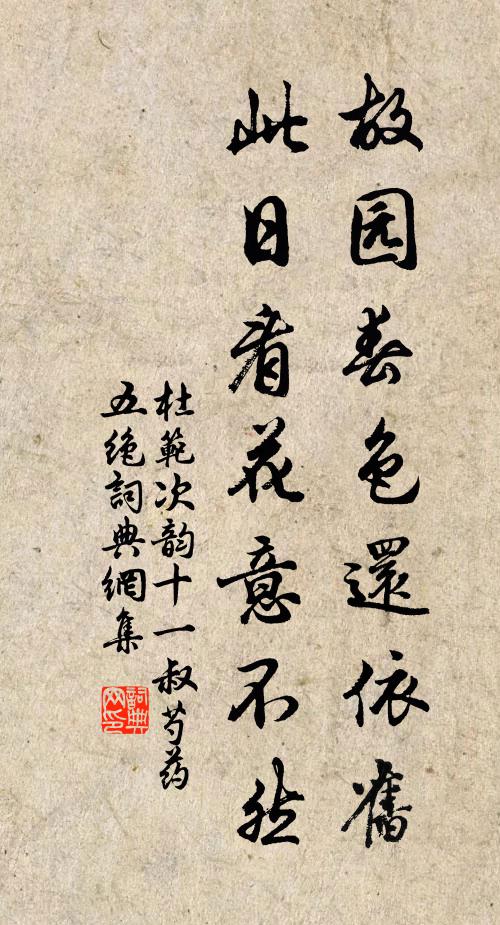 故园春色還依舊
此日看花意不然
杜範次韵十一叔芍药
五绝詞典網集
詞典网印